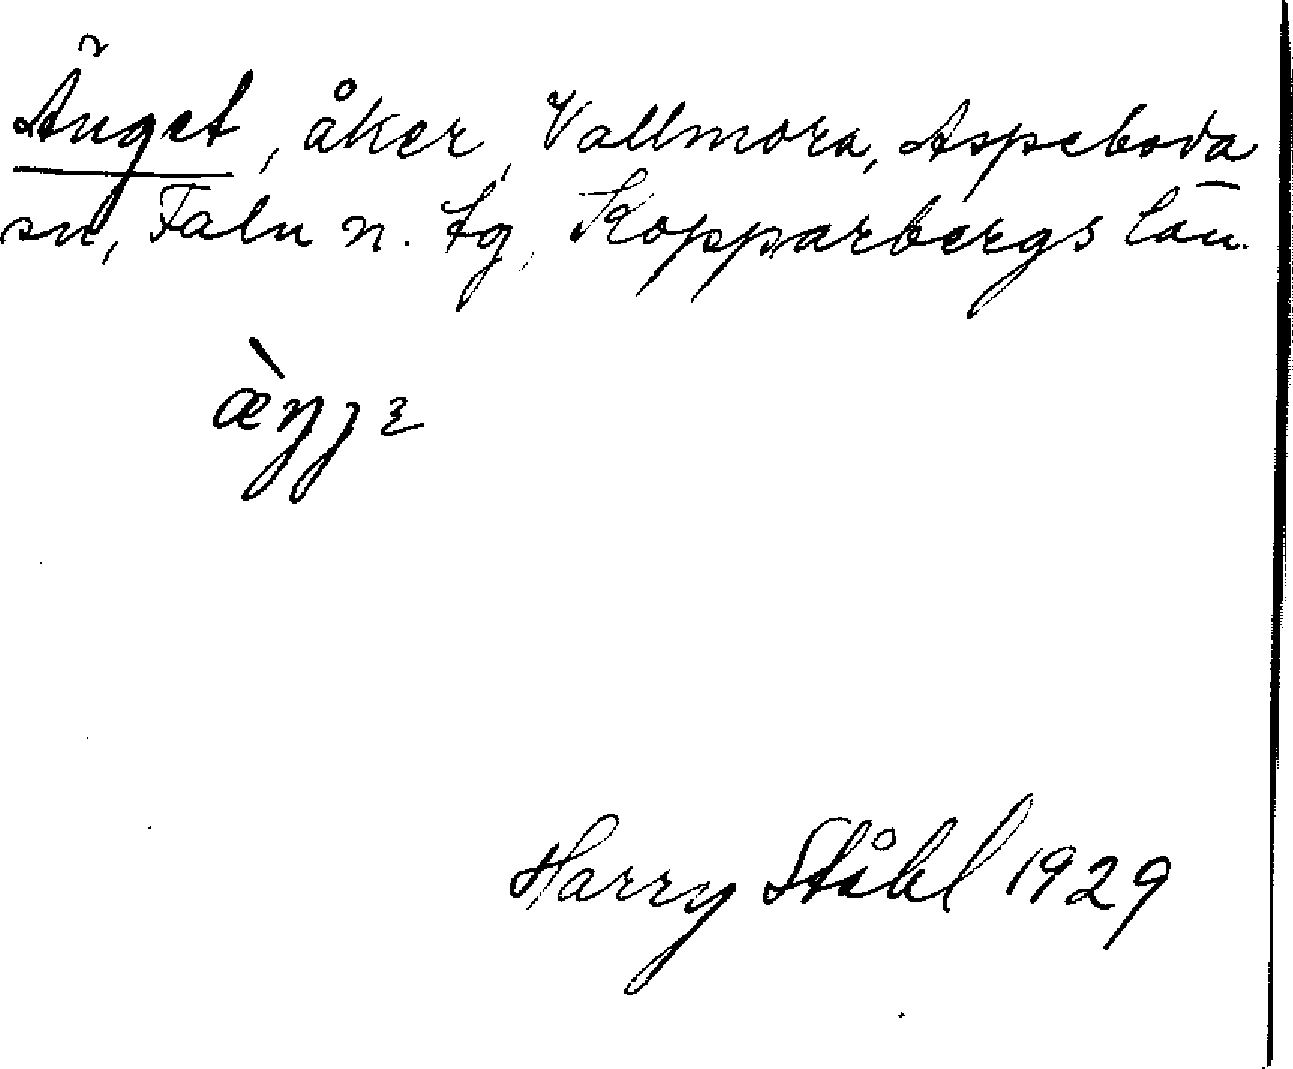 Änget, åker, Vallmora, Aspeboda
sn, Falu n. tg, Kopparbergs län.
æ̀ŋjɛ
Harry Ståhl 1929